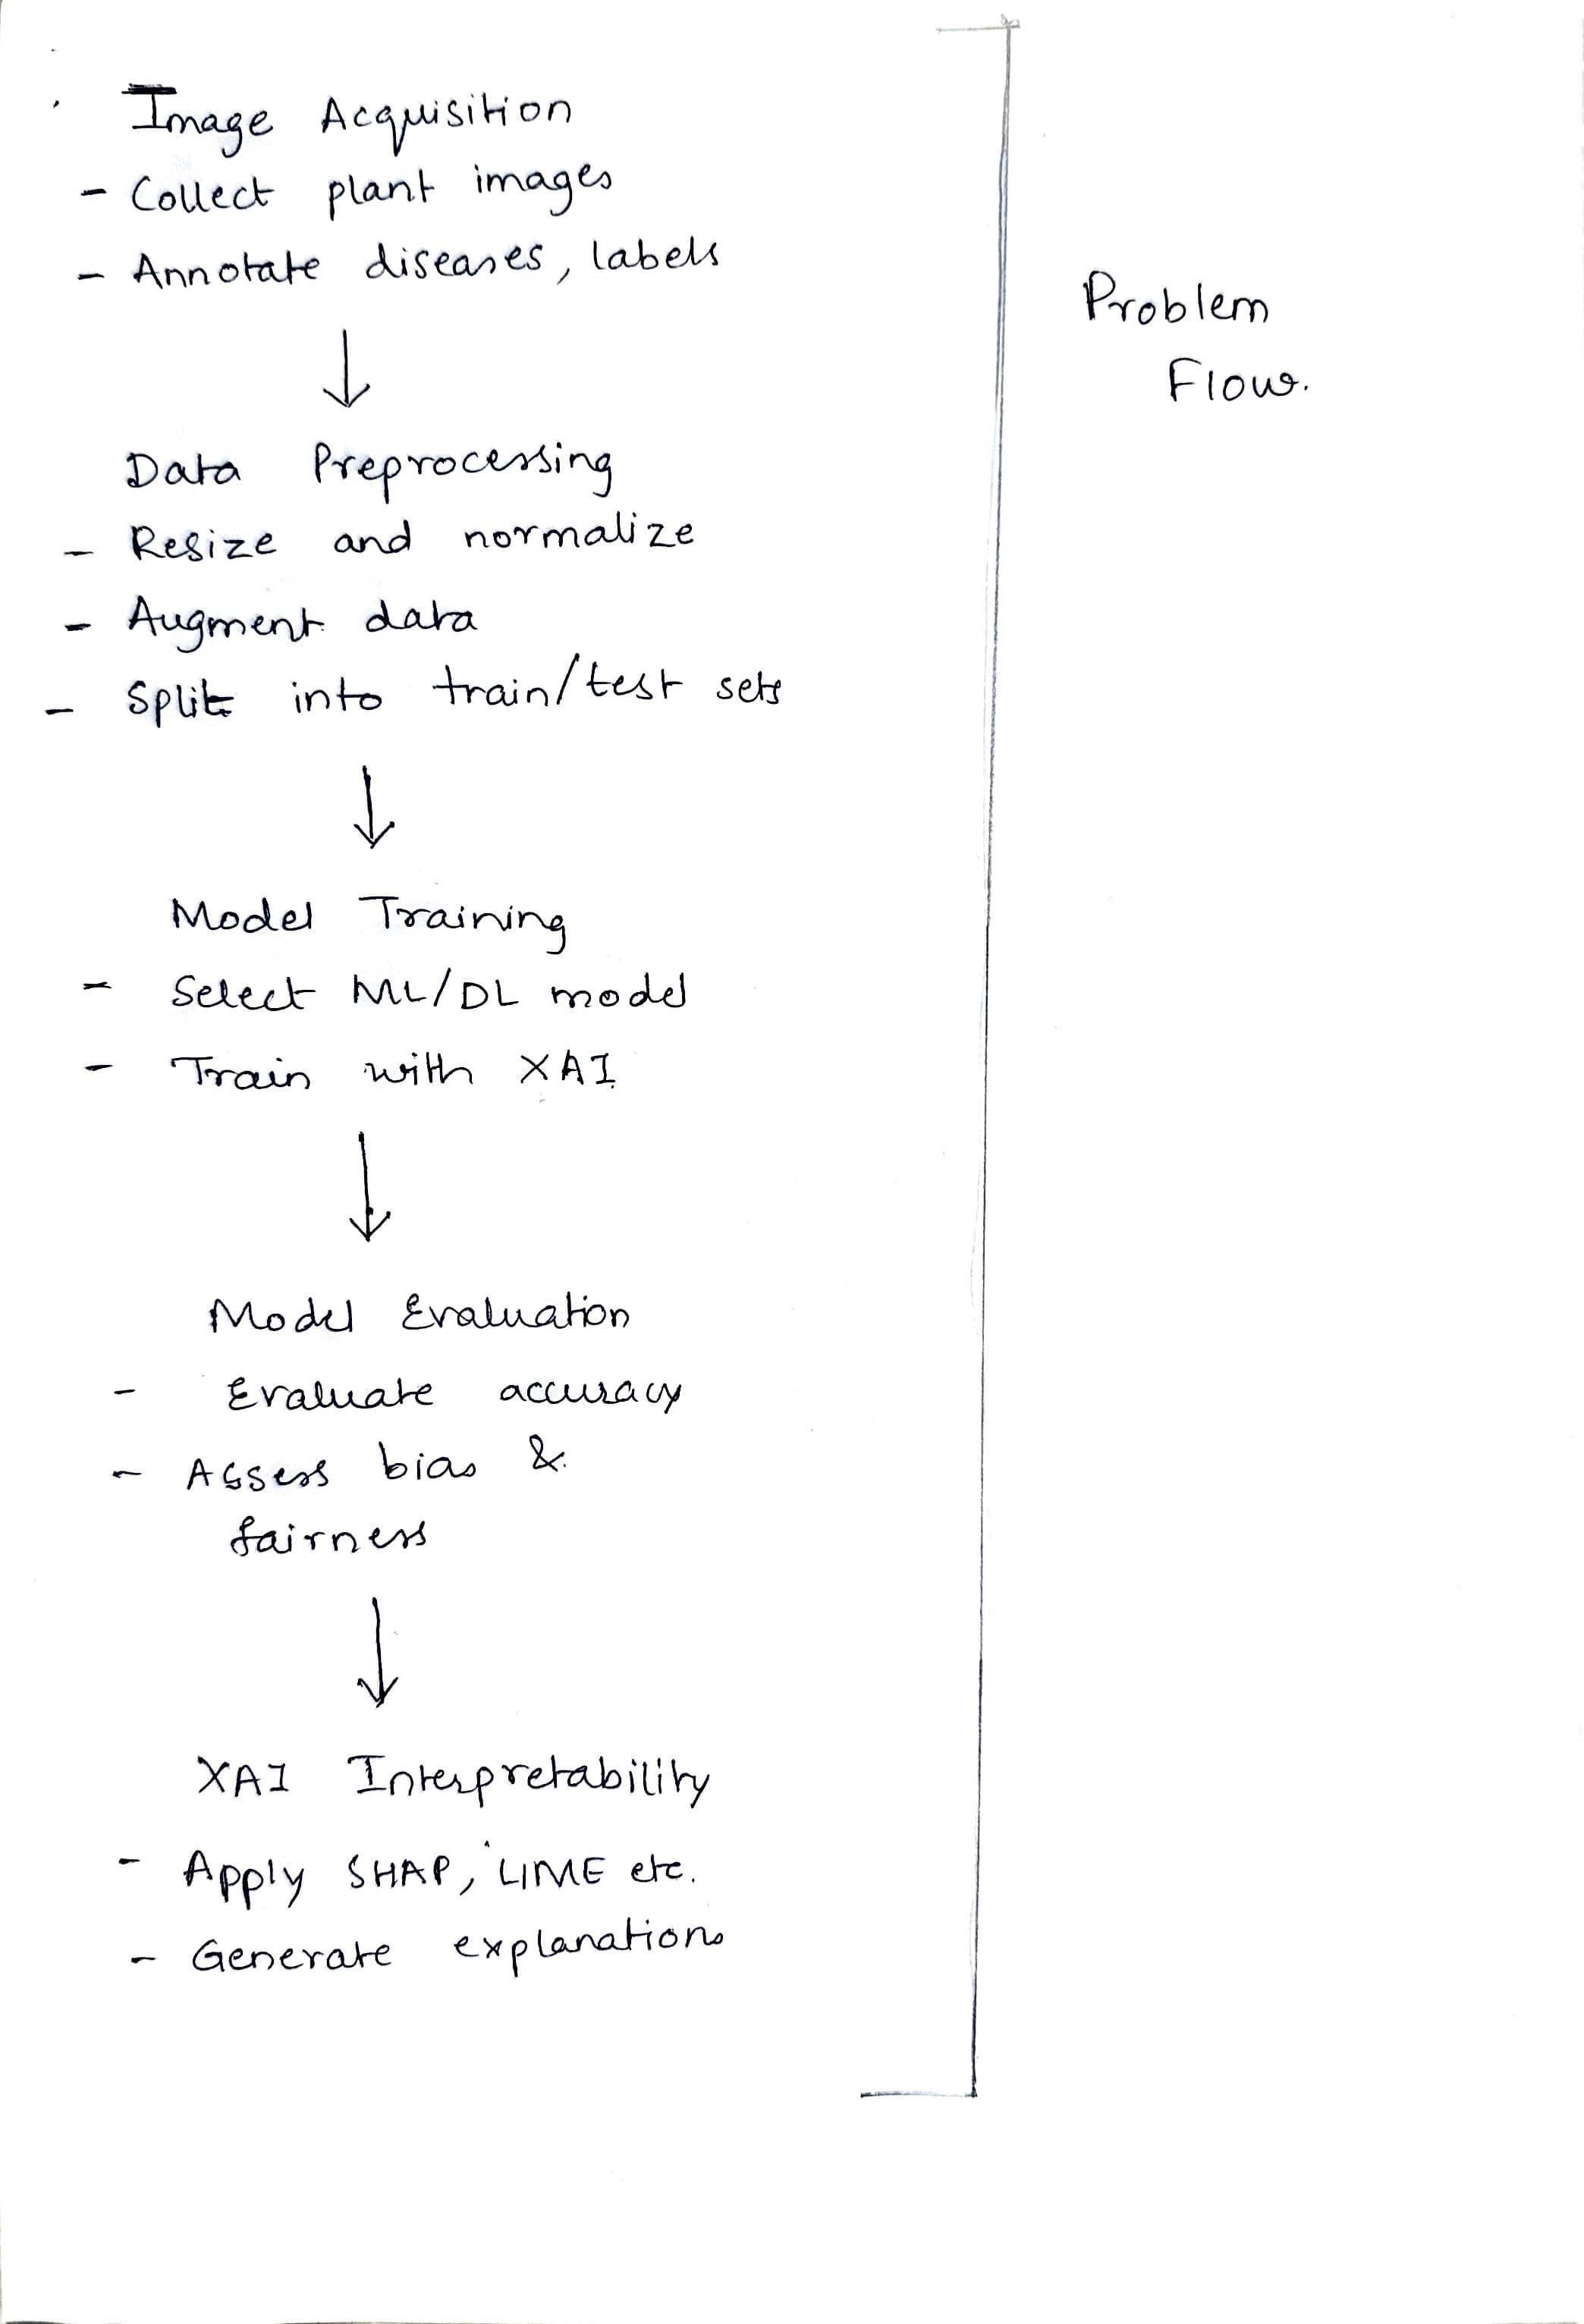 Image Acquisition
- Collect plant images
- Annotate diseases, labels
↓
Data Preprocessing
- Resize and normalize
- Augment data
- Split into train/test sets
↓
Model Training
- Select ML/DL model
- Train with XAI
↓
Model Evaluation
- Evaluate accuracy
- Assess bias &
fairness
↓
XAI Interpretability
- Apply SHAP, LIME etc.
- Generate explanations
Problem
Flow.